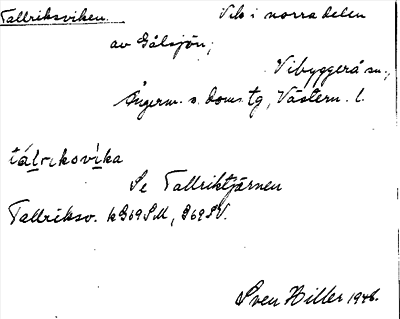 Tallriksviken. Vik i norra delen
av Gålsjön;
Vibyggerå sn.,
Ångerm. s. doms. tg, Västern. l.
tálrıksovíka
Se Tallriktjärnen
Tallriksv. k G69SM, G69SV.
Sven Hiller 1946.